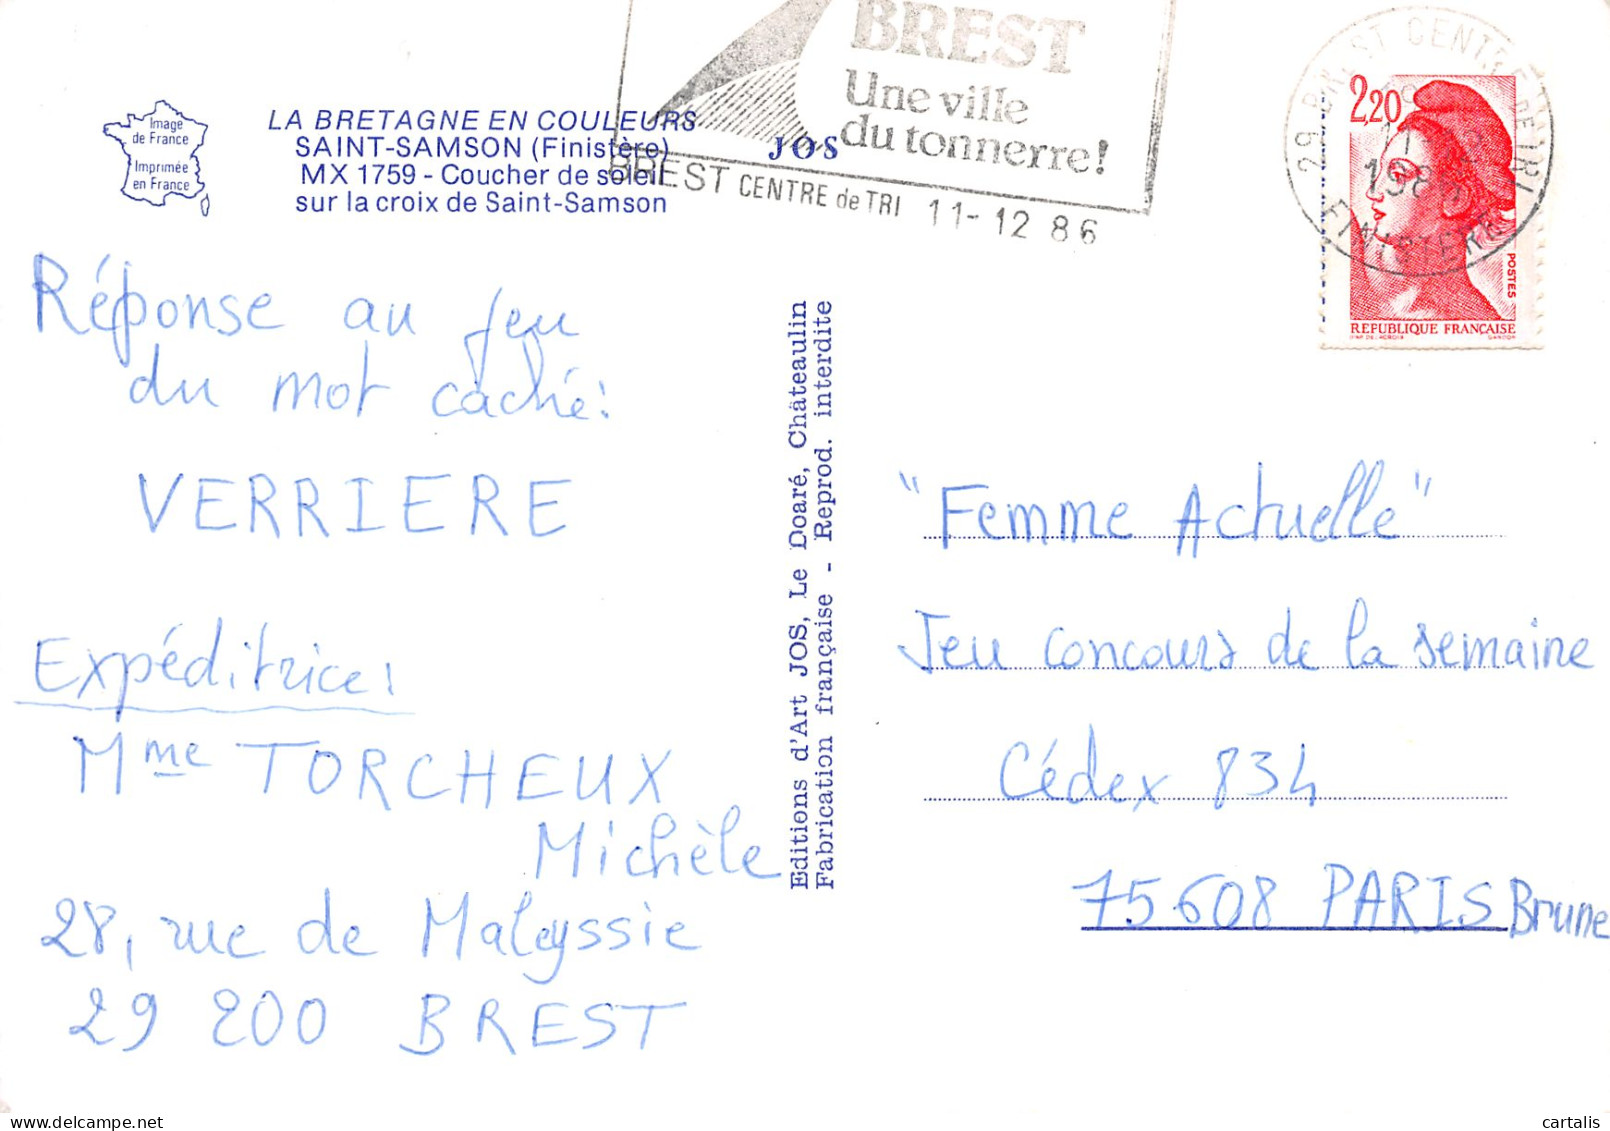 Image
de France
Imprimée
en France
LA BRETAGNE EN COULEURS
SAINT-SAMSON (Finistère)
MX 1759 - Coucher de soleil
sur la croix de Saint-Samson
JOS
BREST
Une ville
du tonnerre!
BREST CENTRE de TRI 11-12 86
29 BREST CENTRE DE TRI
11
1986
FINISTERE
2,20
POSTES
REPUBLIQUE FRANÇAISE
GANDON
Réponse au jeu
du mot caché:
VERRIERE
Expéditrice:
Mme TORCHEUX
Michèle
28, rue de Maleyssie
29 200 BREST
Editions d'Art JOS, Le Doaré, Châteaulin
Fabrication française - Reprod. interdite
"Femme Actuelle"
Jeu concours de la semaine
Cédex 834
75608 PARIS Brune
cartalis